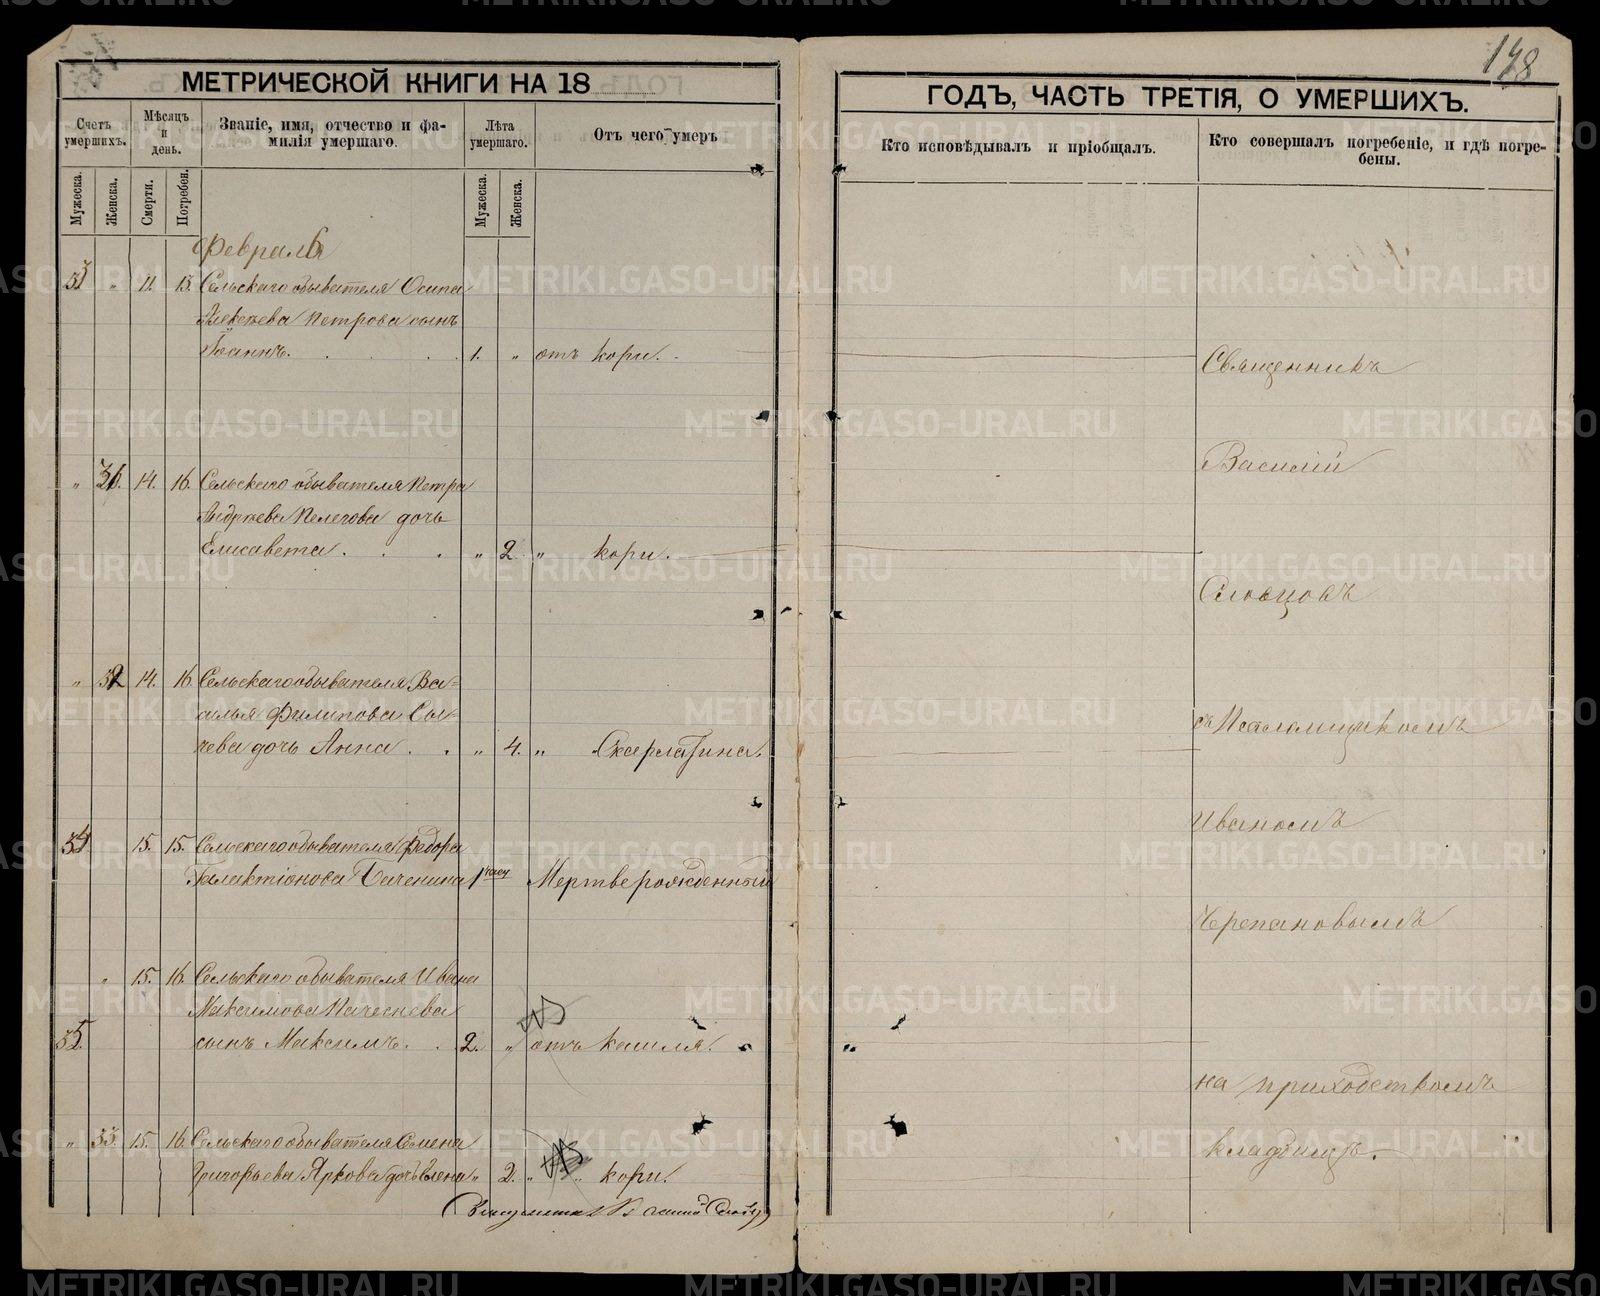 178
МЕТРИЧЕСКОЙ КНИГИ НА 18
ГОДЪ, ЧАСТЬ ТРЕТІЯ, О УМЕРШИХЪ.
Счетъ умершихъ.
Мѣсяцъ и день.
Званіе, имя, отчество и фамилія умершаго.
Лѣта умершаго.
Отъ чего умеръ
Кто исповѣдывалъ и пріобщалъ.
Кто совершалъ погребеніе, и гдѣ погребены.
Мужеска.
Женска.
Смерти.
Погребен.
Мужеска.
Женска.
Февраль
53 " 11. 13. Сельскаго обывателя Осипа
Алексѣева Петрова сынъ
Іоаннъ. 1. " отъ кори.
" 31. 14. 16. Сельскаго обывателя Петра
Андреева Пелегова дочь
Елисавета. " 2. " кори.
" 32 14. 16. Сельскаго обывателя Ва-
силья Филипова Сы-
чева дочь Анна. " 4. " Скарлатина.
54. 15. 15. Сельскаго обывателя Федора
Галактіонова Мертворожденный
" 15. 16. Сельскаго обывателя Ивана
Максимова
55. сынъ Максимъ. 2. " отъ кашля.
" 33. 15. 16. Сельскаго обывателя Семена
Григорьева Яркова дочь Елена " 2. " " кори.
Священникъ
Василій
Словцовъ
съ Псаломщикомъ
Иваномъ
Черепановымъ
на приходскомъ
кладбищѣ.
METRIKI.GASO-URAL.RU